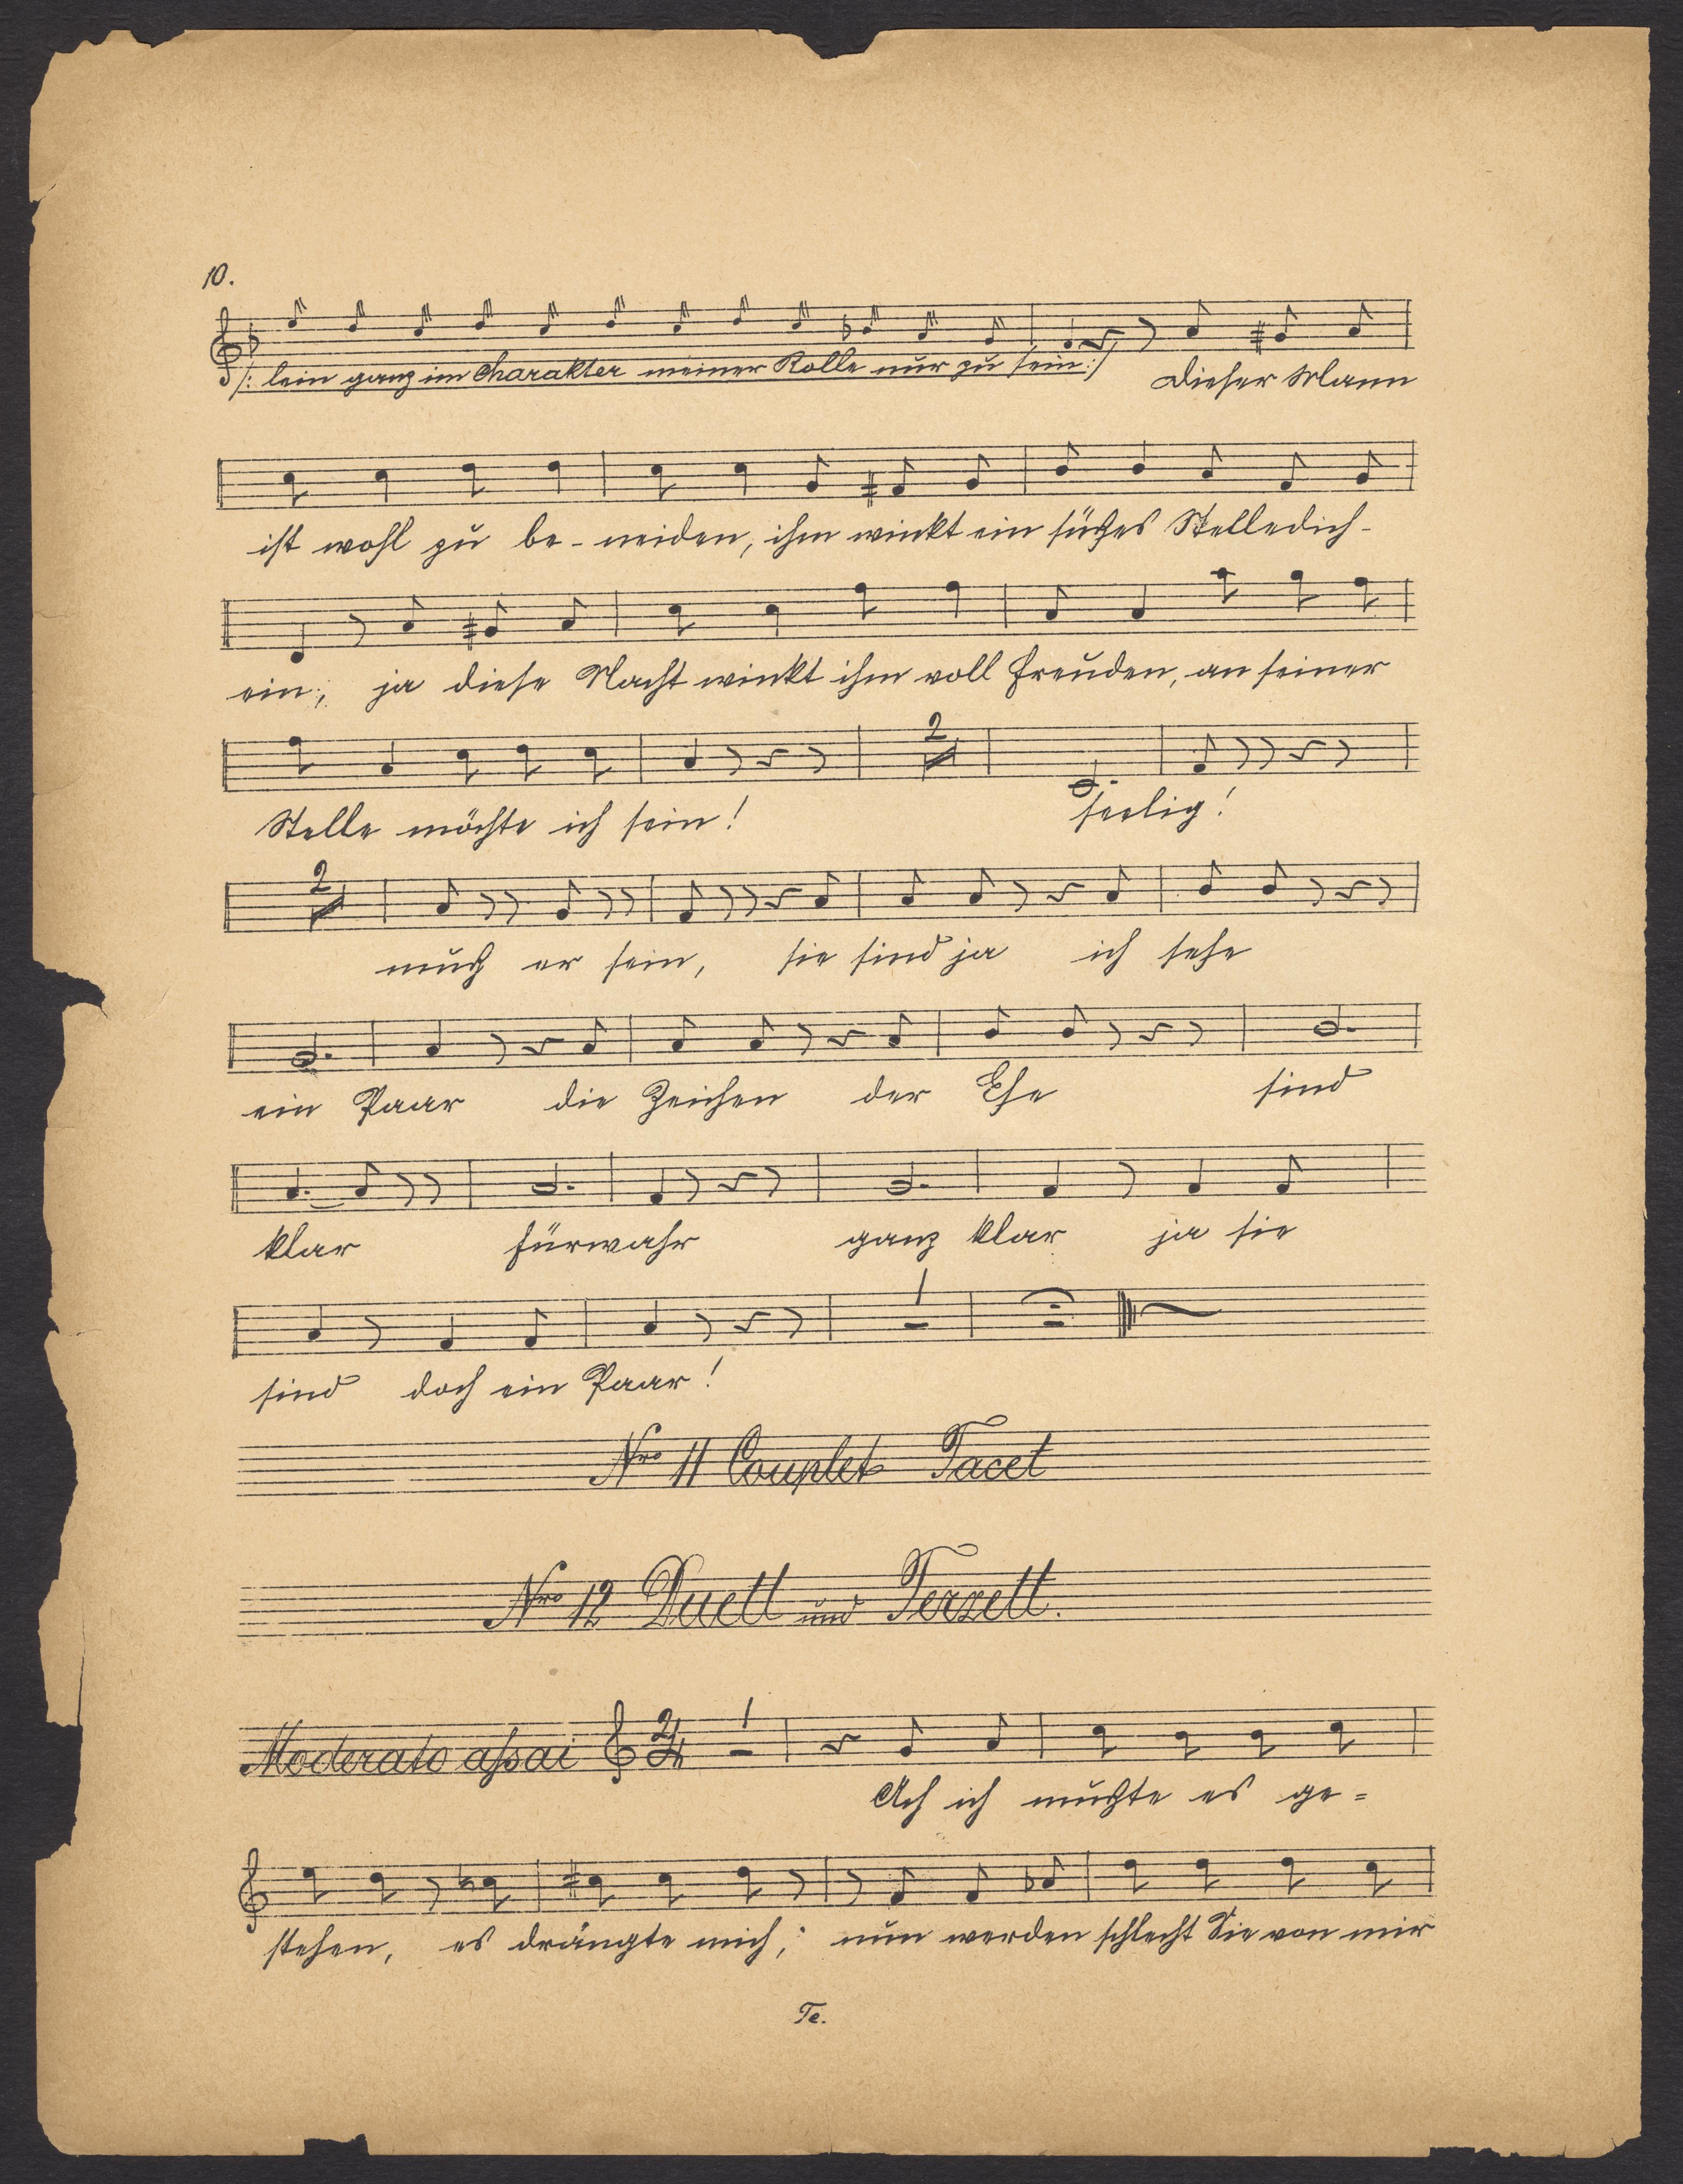 10.
/: lein ganz im Charakter meiner Rolle nur zu sein :/ Dieser Mann
ist wohl zu be- neiden, ihm winkt ein süßes Stelledich-
ein; ja diese Nacht winkt ihm voll Freuden, an seiner
2
Stelle möchte ich sein! seelig!
2
muß er sein, sie sind ja ich sehe
ein Paar die Zeichen der Ehe sind
klar fürwahr ganz klar ja sie
1
sind doch ein Paar!
Nro 11 Couplet Tacet
Nro 12 Duett und Terzett.
Moderato assai 2/4 1
Ach ich mußte es ge=
stehen, es drängte mich; nun werden schlecht Sie von mir
Te.